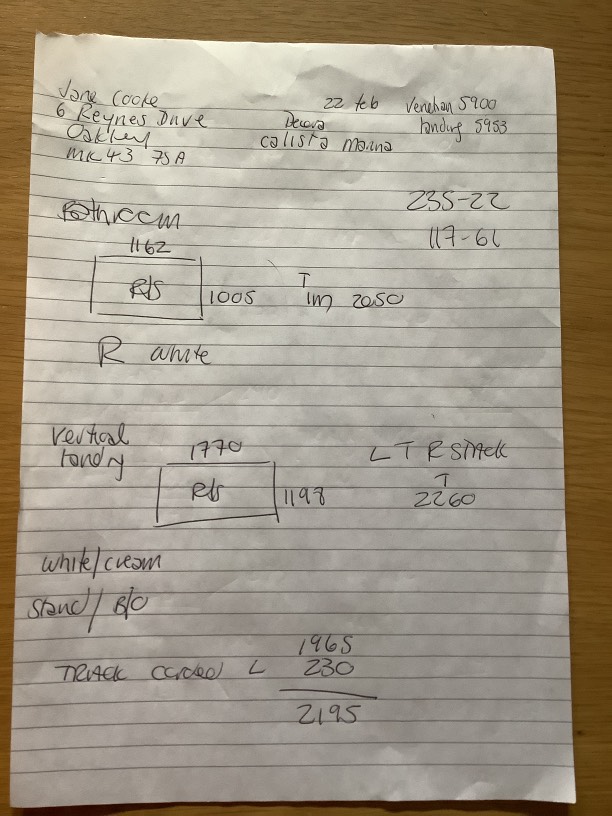 Jane Cooke
6 Reynes Drive
Oakley
MK43 7SA
22 feb
Decora
calista Marina
Venetian 5900
tandry 5953
Bathroom
235-22
1162
R/S
1005
T
1m 2050
R white
Vertical
tandry
1770
R/S
1198
L T R STACK
T
2260
white/cream
Stand/ B/O
1965
TRACK corded L 230
2195